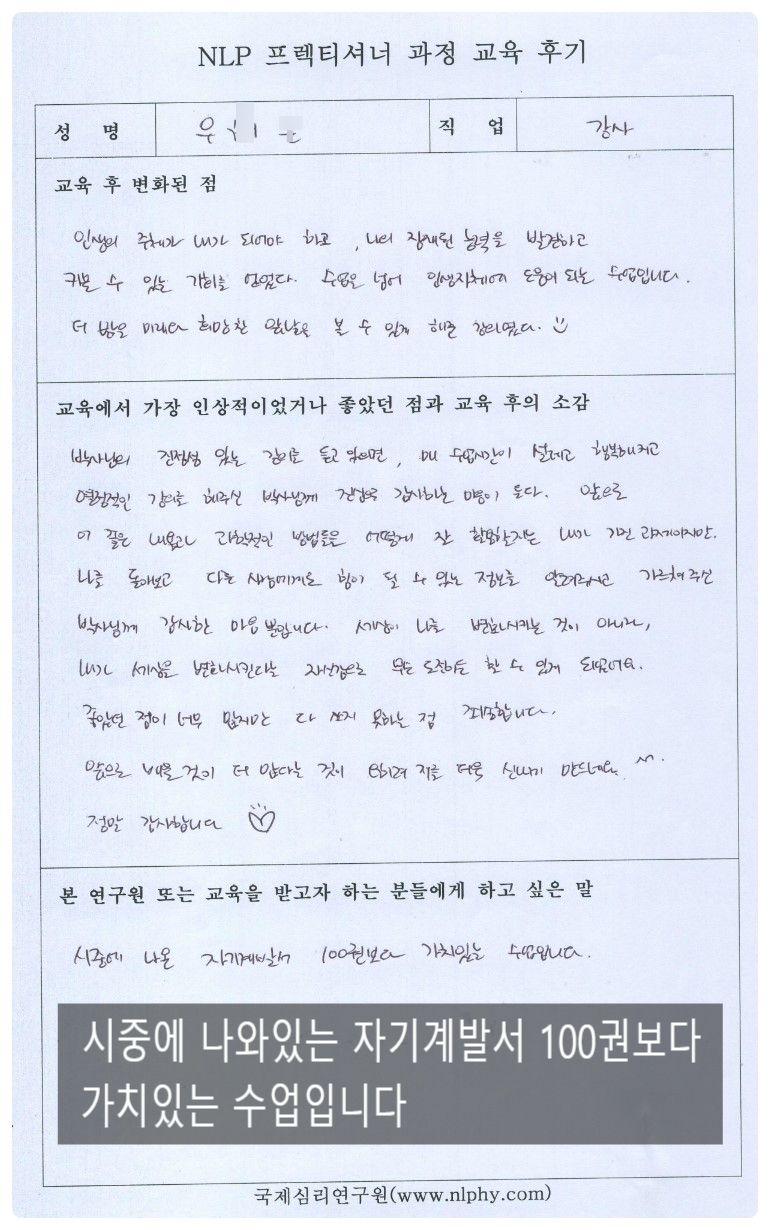 NLP 프렉티셔너 과정 교육 후기
성 명 우 직 업 강사
교육 후 변화된 점
인생의 주체가 내가 되어야 하고, 나의 잠재된 능력을 발견하고
키울 수 있는 기회를 얻었다. 수업을 넘어 인생자체에 도움이 되는 수업입니다.
더 밝은 미래와 희망찬 앞날을 볼 수 있게 해준 강의였다.
교육에서 가장 인상적이었거나 좋았던 점과 교육 후의 소감
박사님의 진정성 있는 강의를 듣고 있으면, 매 수업시간이 설레고 행복해지고
열정적인 강의를 해주신 박사님께 진심으로 감사하는 마음이 든다. 앞으로
이 좋은 내용과 과학적인 방법들을 어떻게 잘 활용할지는 내가 가진 과제이지만,
나를 돌아보고 다른 사람에게도 힘이 될 수 있는 정보를 알려주시고 가르쳐 주신
박사님께 감사한 마음 뿐입니다. 세상이 나를 변화시키는 것이 아니라,
내가 세상을 변화시킨다는 자신감으로 무슨 도전이든 할 수 있게 되었어요.
좋았던 점이 너무 많지만 다 쓰지 못하는 점 죄송합니다.
앞으로 배울 것이 더 많다는 것이 오히려 저를 더욱 신나게 만드네요.
정말 감사합니다
본 연구원 또는 교육을 받고자 하는 분들에게 하고 싶은 말
시중에 나온 자기계발서 100권보다 가치있는 수업입니다.
시중에 나와있는 자기계발서 100권보다
가치있는 수업입니다
국제심리연구원(www.nlphy.com)